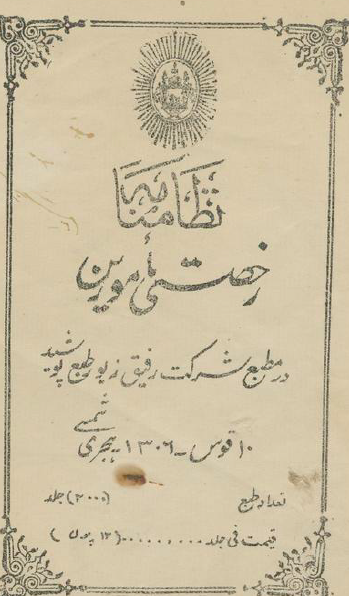 نظامنامه
رخصتی مأمورین
در مطبع شرکت رفیق زیور طبع پوشید
۱۰ قوس - ۱۳۰۶ هجری شمسی
تعداد طبع (۲۰۰۰) جلد
قیمت فی جلد .......... (۱۳ پول)